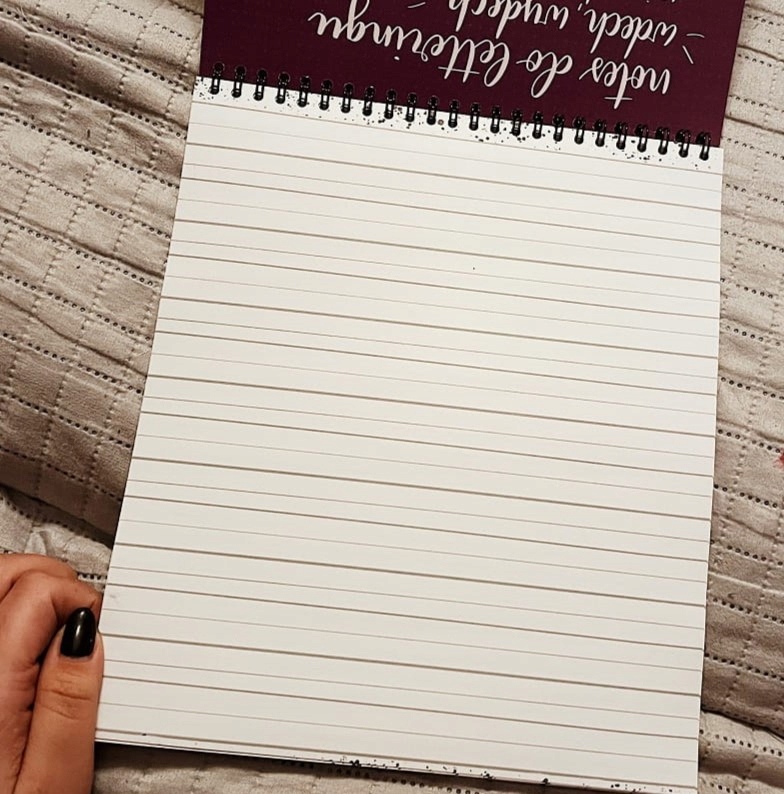 notes do letteringu
wdech, wydech